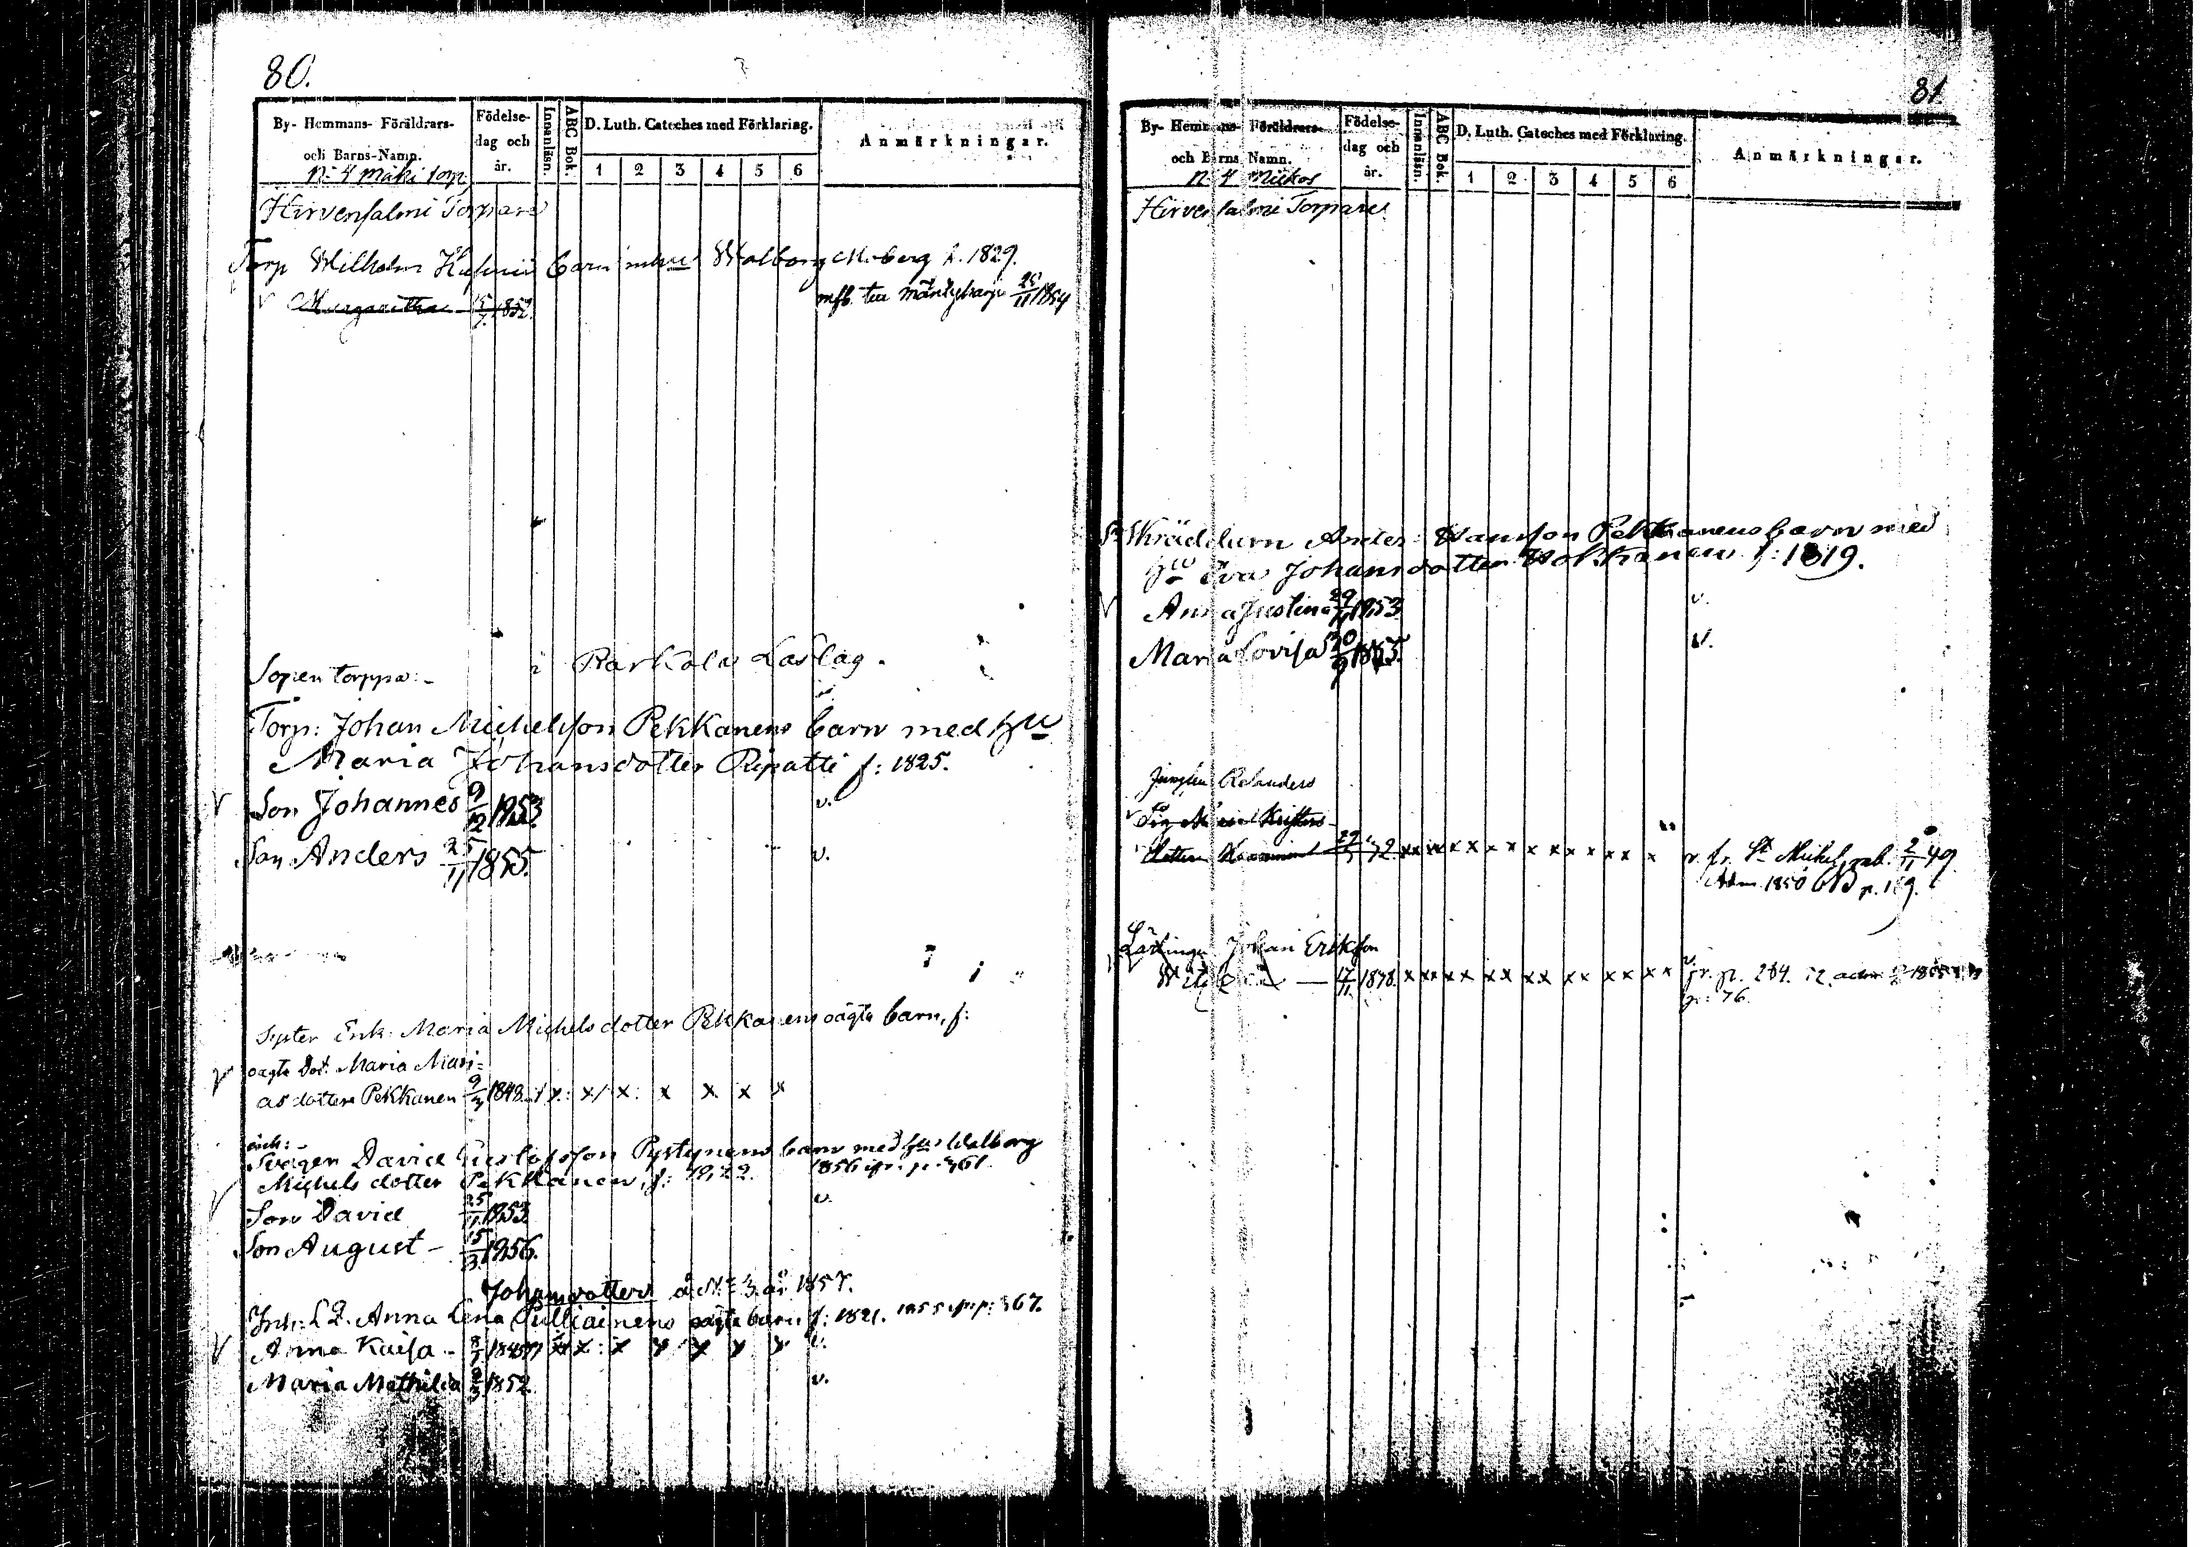 80.
By- Hemmans- Föräldrars-
och Barns-Namn.
Födelse-
dag och
år.
Innanläsn.
ABC Bok.
D. Luth. Cateches med Förklaring.
1 2 3 4 5 6
Anmärkningar.
N: 4 Mäki torp
Hirvensalmi Torpare
Torp Wilhelm barn Walborg Moberg f. 1829.
Margaretha 15/7 1852.
mfb. till Mäntyharju 25/11 1854
Sopen torppa:- i Parkola Läslag.
Torp: Johan Michelsson Pekkanens barn med hu
Maria Johansdotter Ripatti f: 1825.
V Son Johannes 9/12 1853. v.
Son Anders 25/11 1855. v.
Syster Enk. Maria Michelsdotter Pekkanens oägta barn, f:
V oägta Dot. Maria Mari=
as dotter Pekkanen 9/7 1848. x x x x x x x
Svåger David Gustafsson Pystynens barn med hu Walborg
Michelsdotter Pekkanen, f: 1822. 1856 p. 361
V Son David 25/11 1853 v.
Son August - 15/3 1856.
Johansdotters å N: 3. år 1857.
Inh: Anna Lena Pulliainens oägta barn f: 1821. 1855 p: 367.
V Anna Kaisa - x x x x x x x v.
Maria Mathilda 1852. v.
81
By- Hemmans- Föräldrars-
och Barns Namn.
Födelse-
dag och
år.
Innanläsn.
ABC Bok.
D. Luth. Cateches med Förklaring.
1 2 3 4 5 6
Anmärkningar.
N: 4 Miikos
Hirvensalmi Torpare
Skräddarn Anders Hansson Pekkanens barn med
hu Eva Johansdotter Hokkanen f: 1819.
V Anna Justina 29/11 1853 v.
Maria Lovisa 20/9 1855. v.
Relanders
x x x x x x x x x x x x fr. St Michel 2/11 49
Adm 1850 CB p. 169.
Lärlingen Johan Eriksson
17/11 1838. x x x x x x x x x x x x x fr. p. 264. adm 1855
p: 76.